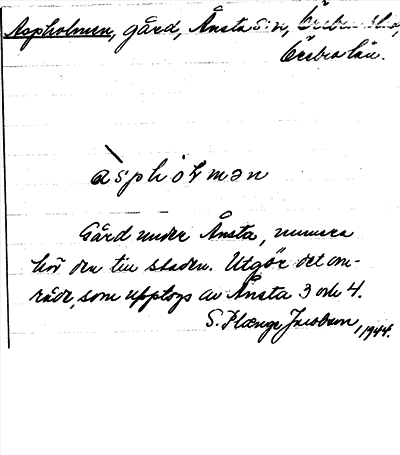 Aspholmen, gård, Ånsta sn, Örebro
Örebro län.
àsphòɫmən
Gård under Ånsta, numera
hör den till staden. Utgör det om-
råde, som upptogs av Ånsta 3 och 4.
S. Plænge Jacobson, 1944.